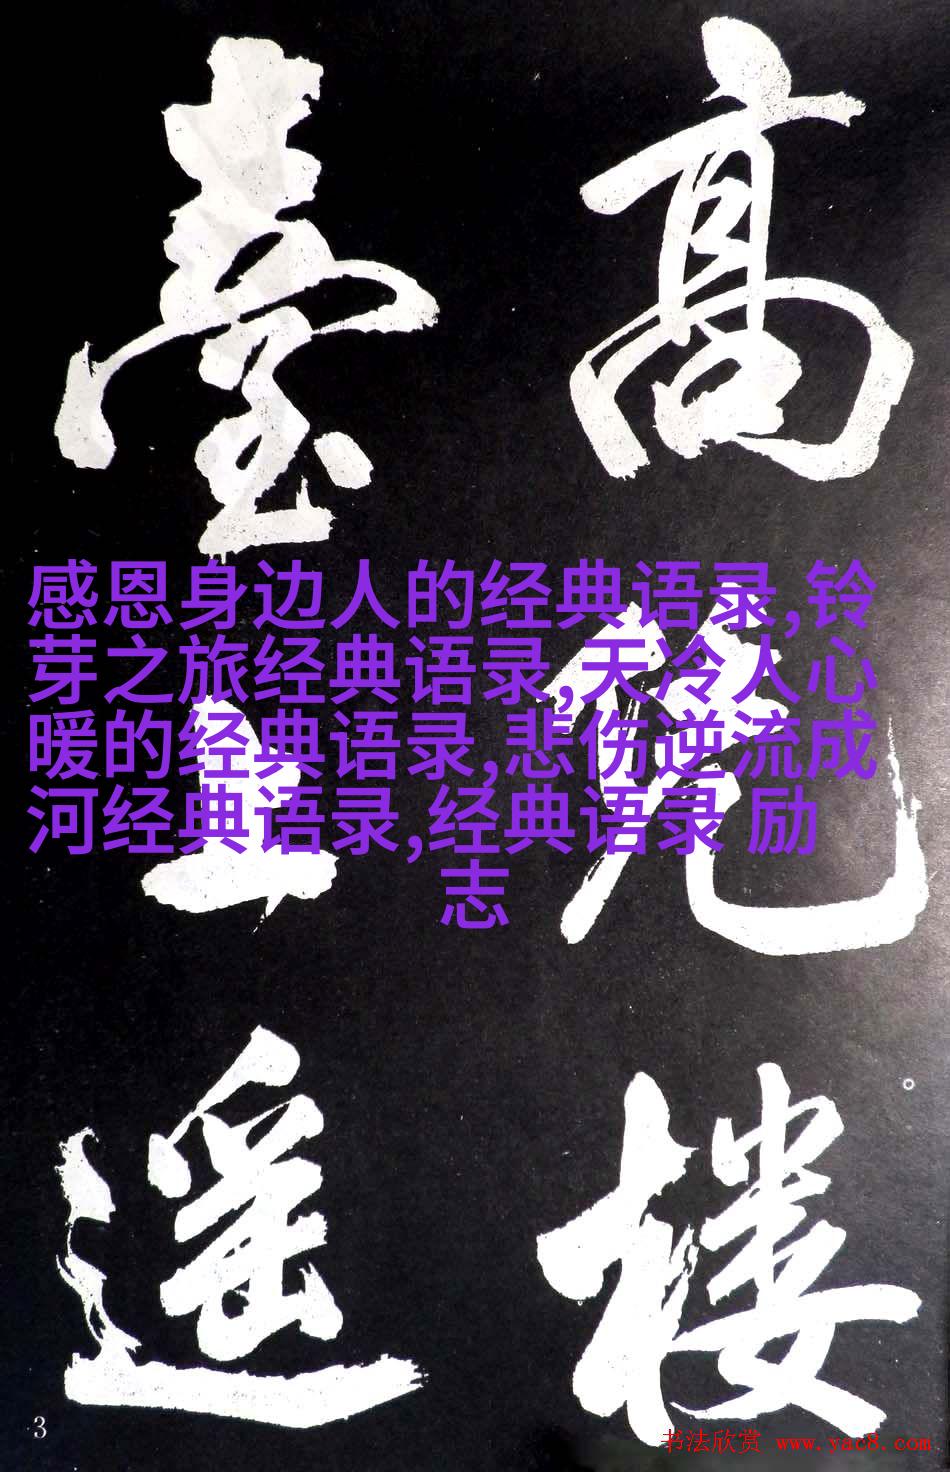 高覽樓
臺上遥
感恩身边人的经典语录,铃
芽之旅经典语录,天冷人心
暖的经典语录,悲伤逆流成
河经典语录,经典语录 励
志
3
书法欣赏 www.yac8.com